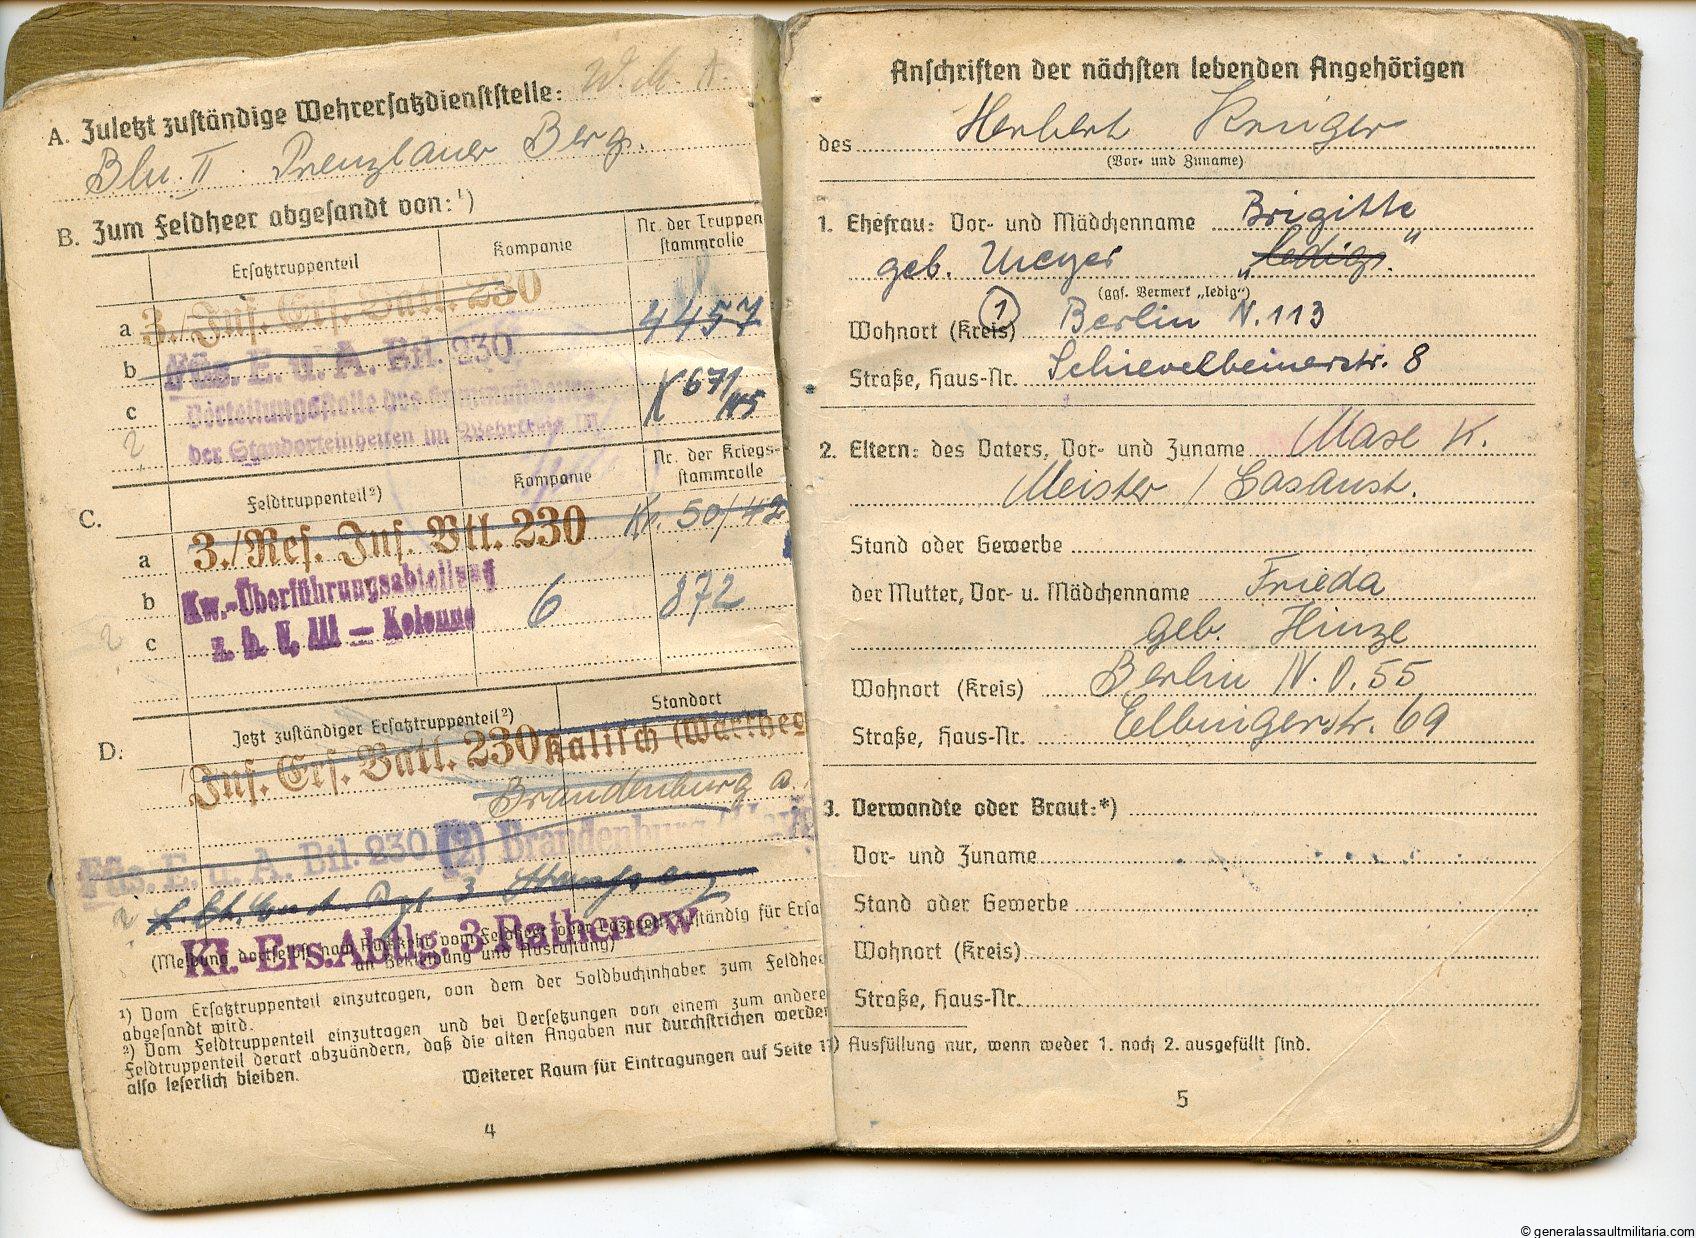 A. Zuletzt zuständige Wehrersatzdienststelle: W.
Bln. II Prenzlauer Berg.
B. Zum Feldheer abgesandt von:¹)
Ersatztruppenteil
Kompanie
Nr. der Truppen
stammrolle
a 3./Inf. Ers. Batl. 230 4457
b Füs. E. u. A. Btl. 230
c Verteilungsstelle des
der Standorteinheiten im Wehrkreis III
K 671/
C.
Feldtruppenteil²)
Kompanie
Nr. der Kriegs-
stammrolle
a 3./Res. Inf. Btl. 230 Kr. 50/42
b Kw.-Überführungsabteilung 6 872
c z. b. V. III — Kolonne
D.
Jetzt zuständiger Ersatztruppenteil²)
Standort
Inf. Ers. Batl. 230 Kalisch (Warthe
Brandenburg a.
Füs. E. u. A. Btl. 230 (2) Brandenburg
Kf.-Ers. Abtlg. 3 Rathenow
(Meldung dortselbst nach Rückkehr vom Feldheer oder Lazarett, zuständig für Ersa
an Bekleidung und Ausrüstung)
¹) Vom Ersatztruppenteil einzutragen, von dem der Soldbuchinhaber zum Feldhee
abgesandt wird.
²) Vom Feldtruppenteil einzutragen und bei Versetzungen von einem zum andere
Feldtruppenteil derart abzuändern, daß die alten Angaben nur durchstrichen werden
also leserlich bleiben.
Weiterer Raum für Eintragungen auf Seite 1
4
Anschriften der nächsten lebenden Angehörigen
des Herbert Krüger
(Vor- und Zuname)
1. Ehefrau: Vor- und Mädchenname Brigitte
geb. Meyer „ledig."
(ggf. Vermerk „ledig")
Wohnort (Kreis) 1 Berlin N. 113
Straße, Haus-Nr. Schievelbeinerstr. 8
2. Eltern: des Vaters, Vor- und Zuname Max K.
Meister /
Stand oder Gewerbe
der Mutter, Vor- u. Mädchenname Frieda
geb. Hinze
Wohnort (Kreis) Berlin N.O. 55
Straße, Haus-Nr. Elbingerstr. 69
3. Verwandte oder Braut:*)
Vor- und Zuname
Stand oder Gewerbe
Wohnort (Kreis)
Straße, Haus-Nr.
*) Ausfüllung nur, wenn weder 1. noch 2. ausgefüllt sind.
5
© generalassaultmilitaria.com